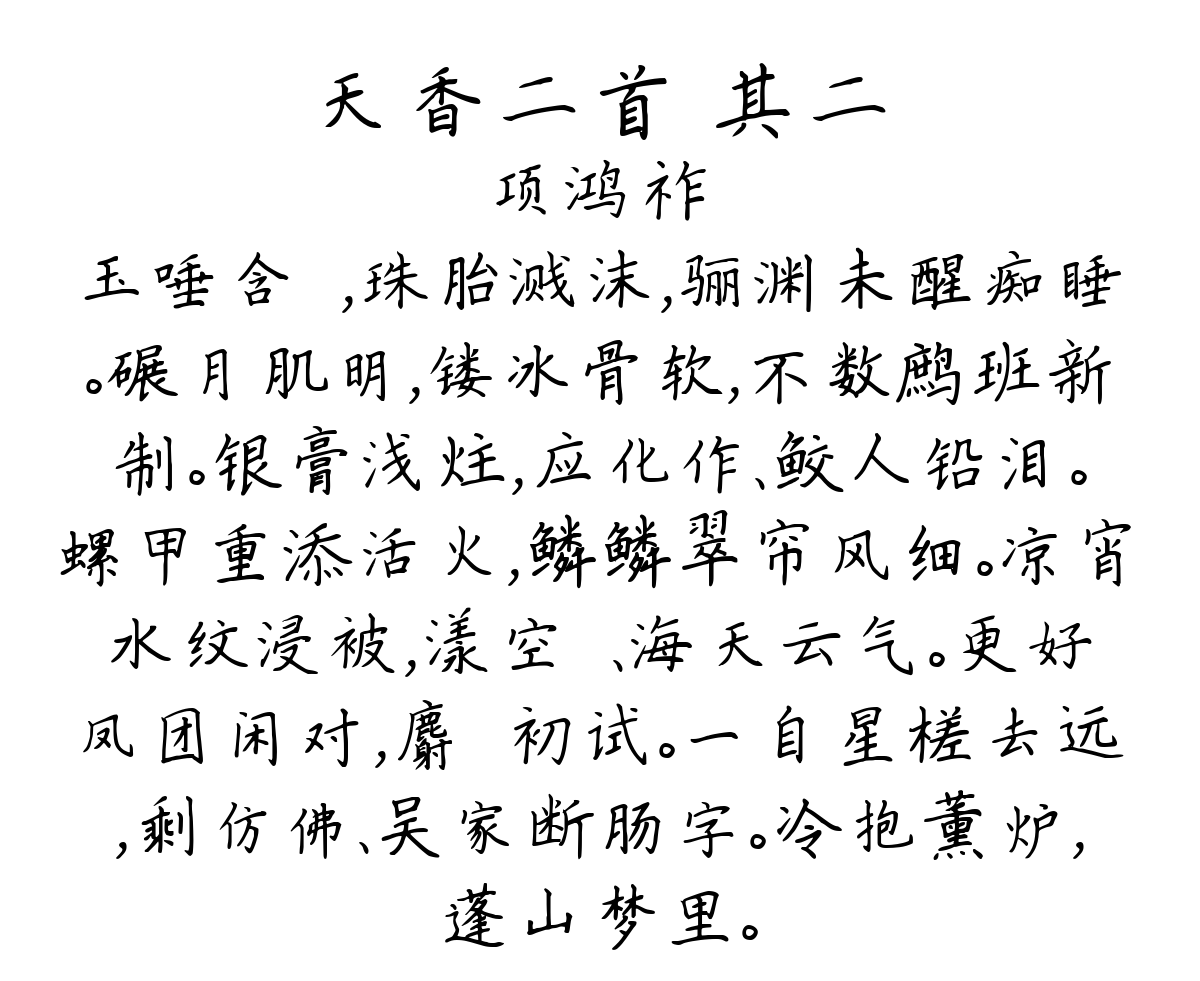 天香二首 其二
项鸿祚
玉唾含 ,珠胎溅沫,骊渊未醒痴睡
。碾月肌明,镂冰骨软,不数鹧班新
制。银膏浅炷,应化作、鲛人铅泪。
螺甲重添活火,鳞鳞翠帘风细。凉宵
水纹浸被,漾空 、海天云气。更好
凤团闲对,麝 初试。一自星槎去远
,剩仿佛、吴家断肠字。冷抱薰炉,
蓬山梦里。